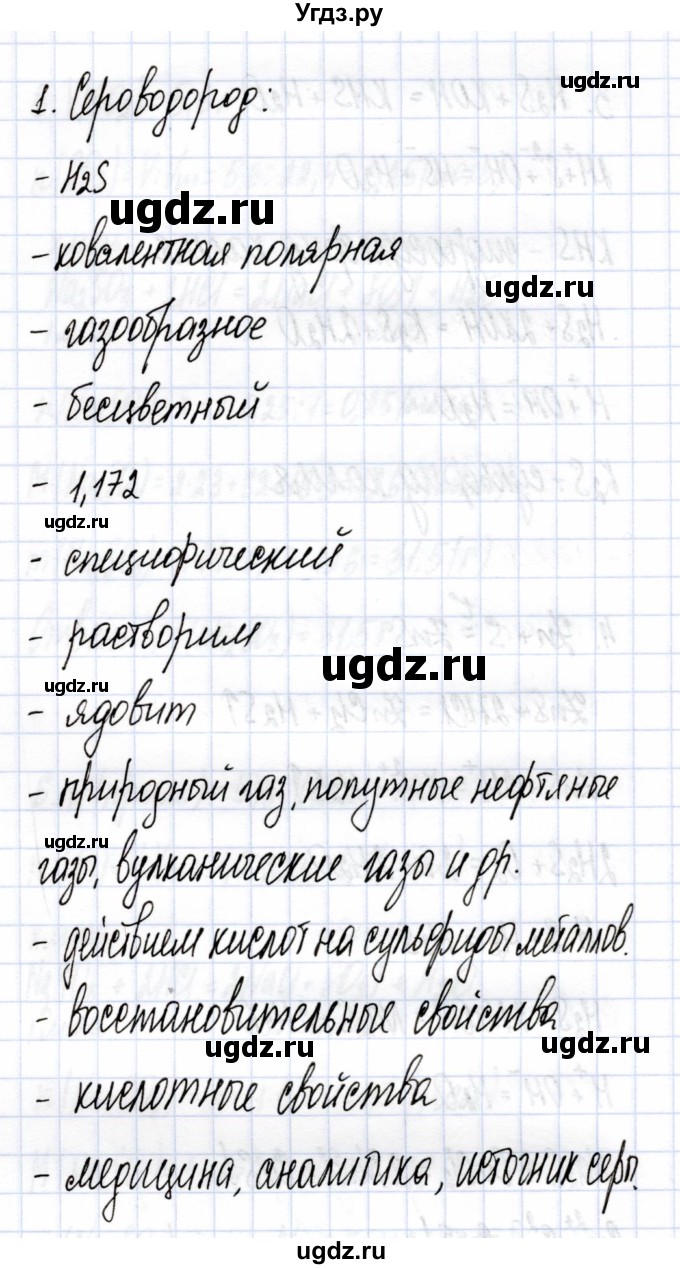 Угдз.ру
ugdz.ru
1. Сероводород:
- H2S
ugdz.ru
- ковалентная полярная
ugdz.ru
- газообразное
- бесцветный
- 1,172
ugdz.ru
- специфический
- растворим
ugdz.ru
ugdz.ru
- ядовит
- природный газ, попутные нефтяные
ugdz.ru
газы, вулканические газы и др.
- действием кислот на сульфиды металлов.
- восстановительные свойства
ugdz.ru
ugdz.ru
- кислотные свойства
- медицина, аналитика, источник серы.
ugdz.ru